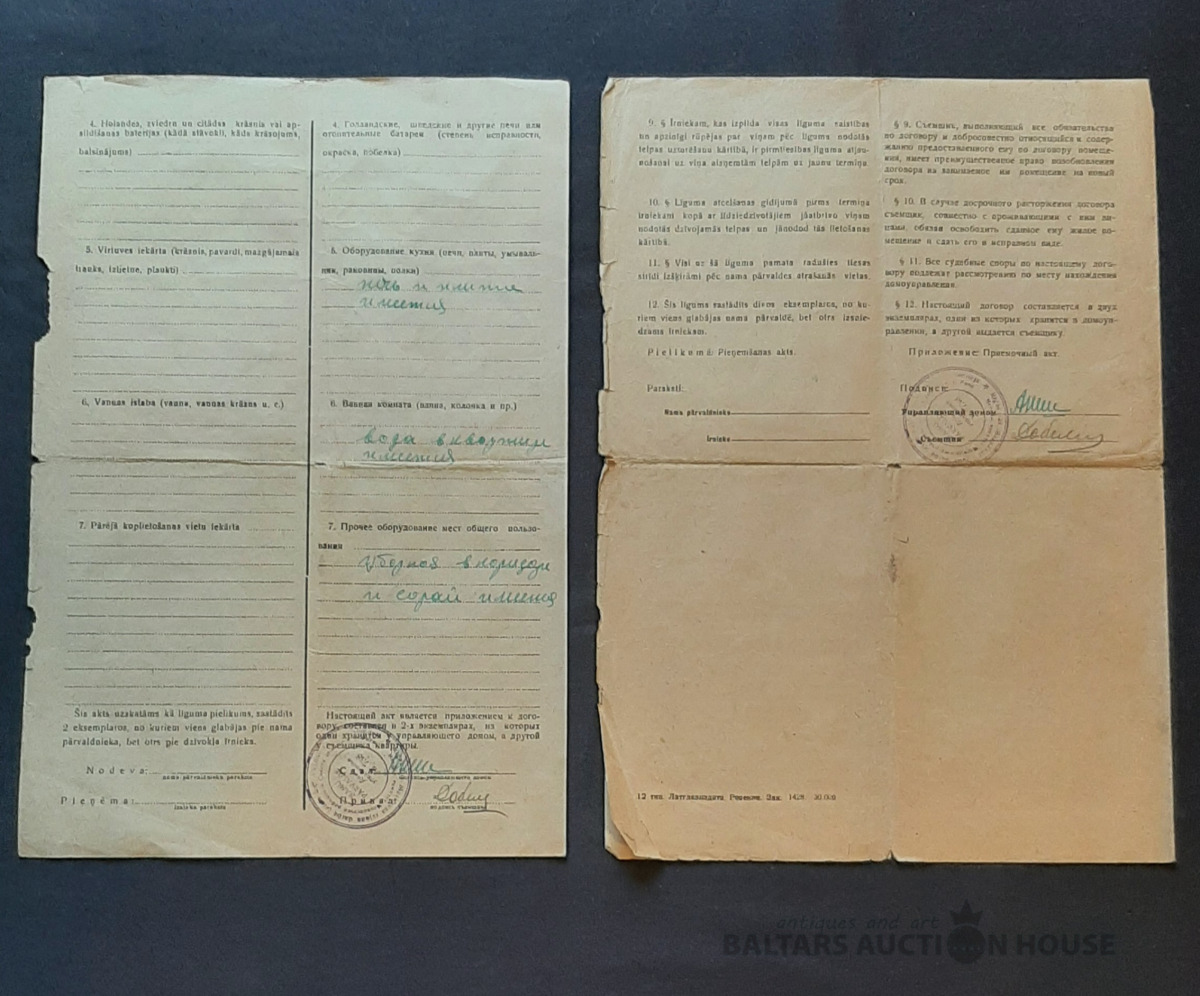 4. Holandes, zviedru un citādas krāsnis vai ap-
sildīšanas baterijas (kādā stāvoklī, kāds krāsojums,
balsinājums)
5. Virtuves iekārta (krāsnis, pavardi, mazgājamais
trauks, izlietne, plaukti)
6. Vannas istaba (vanna, vannas krāsns u. c.)
7. Pārējā koplietošanas vietu iekārta
Šis akts uzskatāms kā līguma pielikums, sastādīts
2 eksemplaros, no kuriem viens glabājas pie nama
pārvaldnieka, bet otrs pie dzīvokļa īrnieka.
Nodeva:
nama pārvaldnieka paraksts
Pieņēma:
īrnieka paraksts
4. Голландские, шведские и другие печи или
отопительные батареи (степень исправности,
окраска, побелка)
5. Оборудование кухни (печи, плиты, умываль-
ник, раковины, полки)
печь и плитка
имеется
6. Ванная комната (ванна, колонка и пр.)
вода в квартире
имеется
7. Прочее оборудование мест общего пользо-
вания
Уборная в коридоре
и сарай имеется
Настоящий акт является приложением к дого-
вору, составлен в 2-х экземплярах, из которых
один хранится у управляющего домом, а другой
съемщика квартиры.
Сдал:
Принял:
подпись съемщика
9. § Īrniekam, kas izpilda visas līguma saistības
un apzinīgi rūpējas par viņam pēc līguma nodotās
telpas uzturēšanu kārtībā, ir pirmtiesības līguma atjau-
nošanai uz viņa aizņemtām telpām uz jaunu termiņu.
10. § Līguma atcelšanas gadījumā pirms termiņa
īrniekam kopā ar līdziedzīvotājiem jāatbrīvo viņam
nodotās dzīvojamās telpas un jānodod tās lietošanas
kārtībā.
11. § Visi uz šā līguma pamata radušies tiesas
strīdi izšķirami pēc nama pārvaldes atrašanās vietas.
12. Šis līgums sastādīts divos eksemplaros, no ku-
riem viens glabājas nama pārvaldē, bet otrs izsnie-
dzams īrniekam.
Pielikumā: Pieņemšanas akts.
Paraksti:
Nama pārvaldnieks
Īrnieks
§ 9. Съемщик, выполняющий все обязательства
по договору и добросовестно относящийся к содер-
жанию предоставленного ему по договору помеще-
ния, имеет преимущественное право возобновления
договора на занимаемое им помещение на новый
срок.
§ 10. В случае досрочного расторжения договора
съемщик, совместно с проживающими с ним ли-
цами, обязан освободить сданное ему жилое по-
мещение и сдать его в исправном виде.
§ 11. Все судебные споры по настоящему дого-
вору подлежат рассмотрению по месту нахождения
домоуправления.
§ 12. Настоящий договор составляется в двух
экземплярах, один из которых хранится в домоуп-
равлении, а другой выдается съемщику.
Приложение: Приемочный акт.
Подписи:
Управляющий домом
Съемщик
12 тип. Латглавиздата, Резекне. Зак. 1428. 30.000
antiques and art
BALTARS AUCTION HOUSE